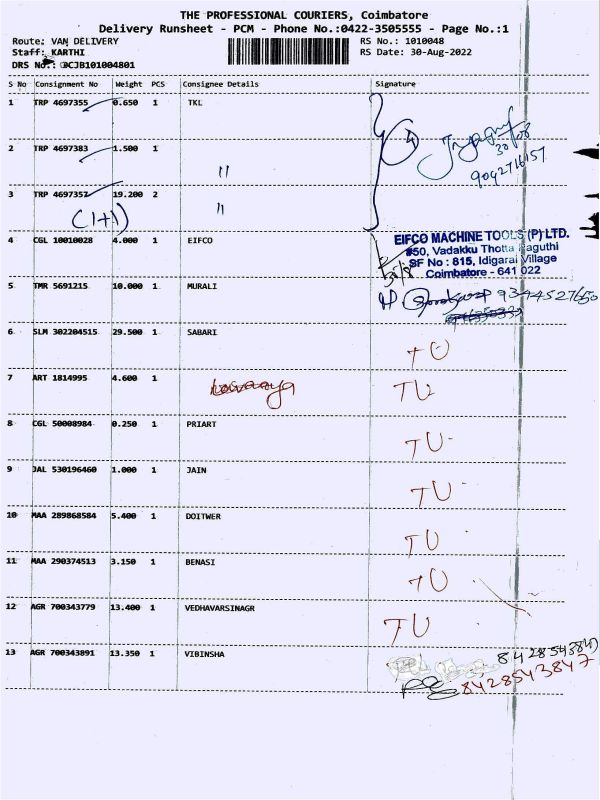 THE PROFESSIONAL COURIERS, Coimbatore
Delivery Runsheet - PCM - Phone No.:0422-3505555 - Page No.:1
Route: VAN DELIVERY
RS No.: 1010048
Staff: KARTHI
RS Date: 30-Aug-2022
DRS No.: @CJB101004801
S No Consignment No Weight PCS Consignee Details Signature
1 TRP 4697355 0.650 1 TKL
30/08
9092716157
2 TRP 4697383 1.500 1 "
3 TRP 4697357 19.200 2 "
(1+1)
4 CGL 10010028 4.000 1 EIFCO
EIFCO MACHINE TOOLS (P) LTD.
#50, Vadakku Thotta Paguthi
SF No : 815, Idigarai Village
Coimbatore - 641 022
5 TMR 5691215 10.000 1 MURALI 9344527650
6 SLM 302204515 29.500 1 SABARI TU
7 ART 1814995 4.600 1 TU
8 CGL 50008984 0.250 1 PRIART TU
9 JAL 530196460 1.000 1 JAIN TU
10 MAA 289868584 5.400 1 DOITWER TU
11 MAA 290374513 3.150 1 BENASI TU
12 AGR 700343779 13.400 1 VEDHAVARSINAGR TU
13 AGR 700343891 13.350 1 VIBINSHA 8428543847
8428543847